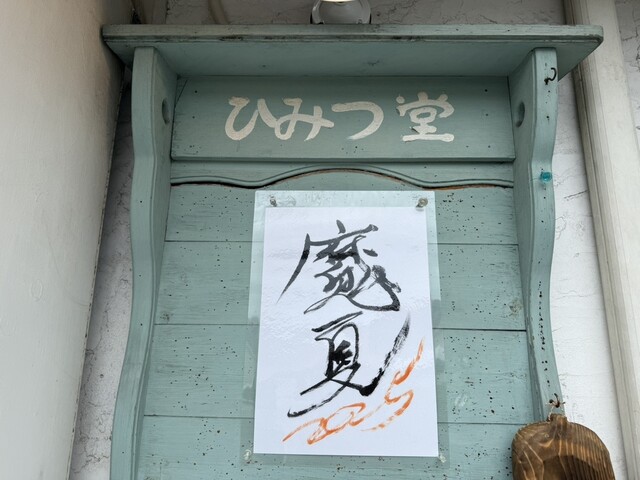 ひみつ堂
魔夏
2025